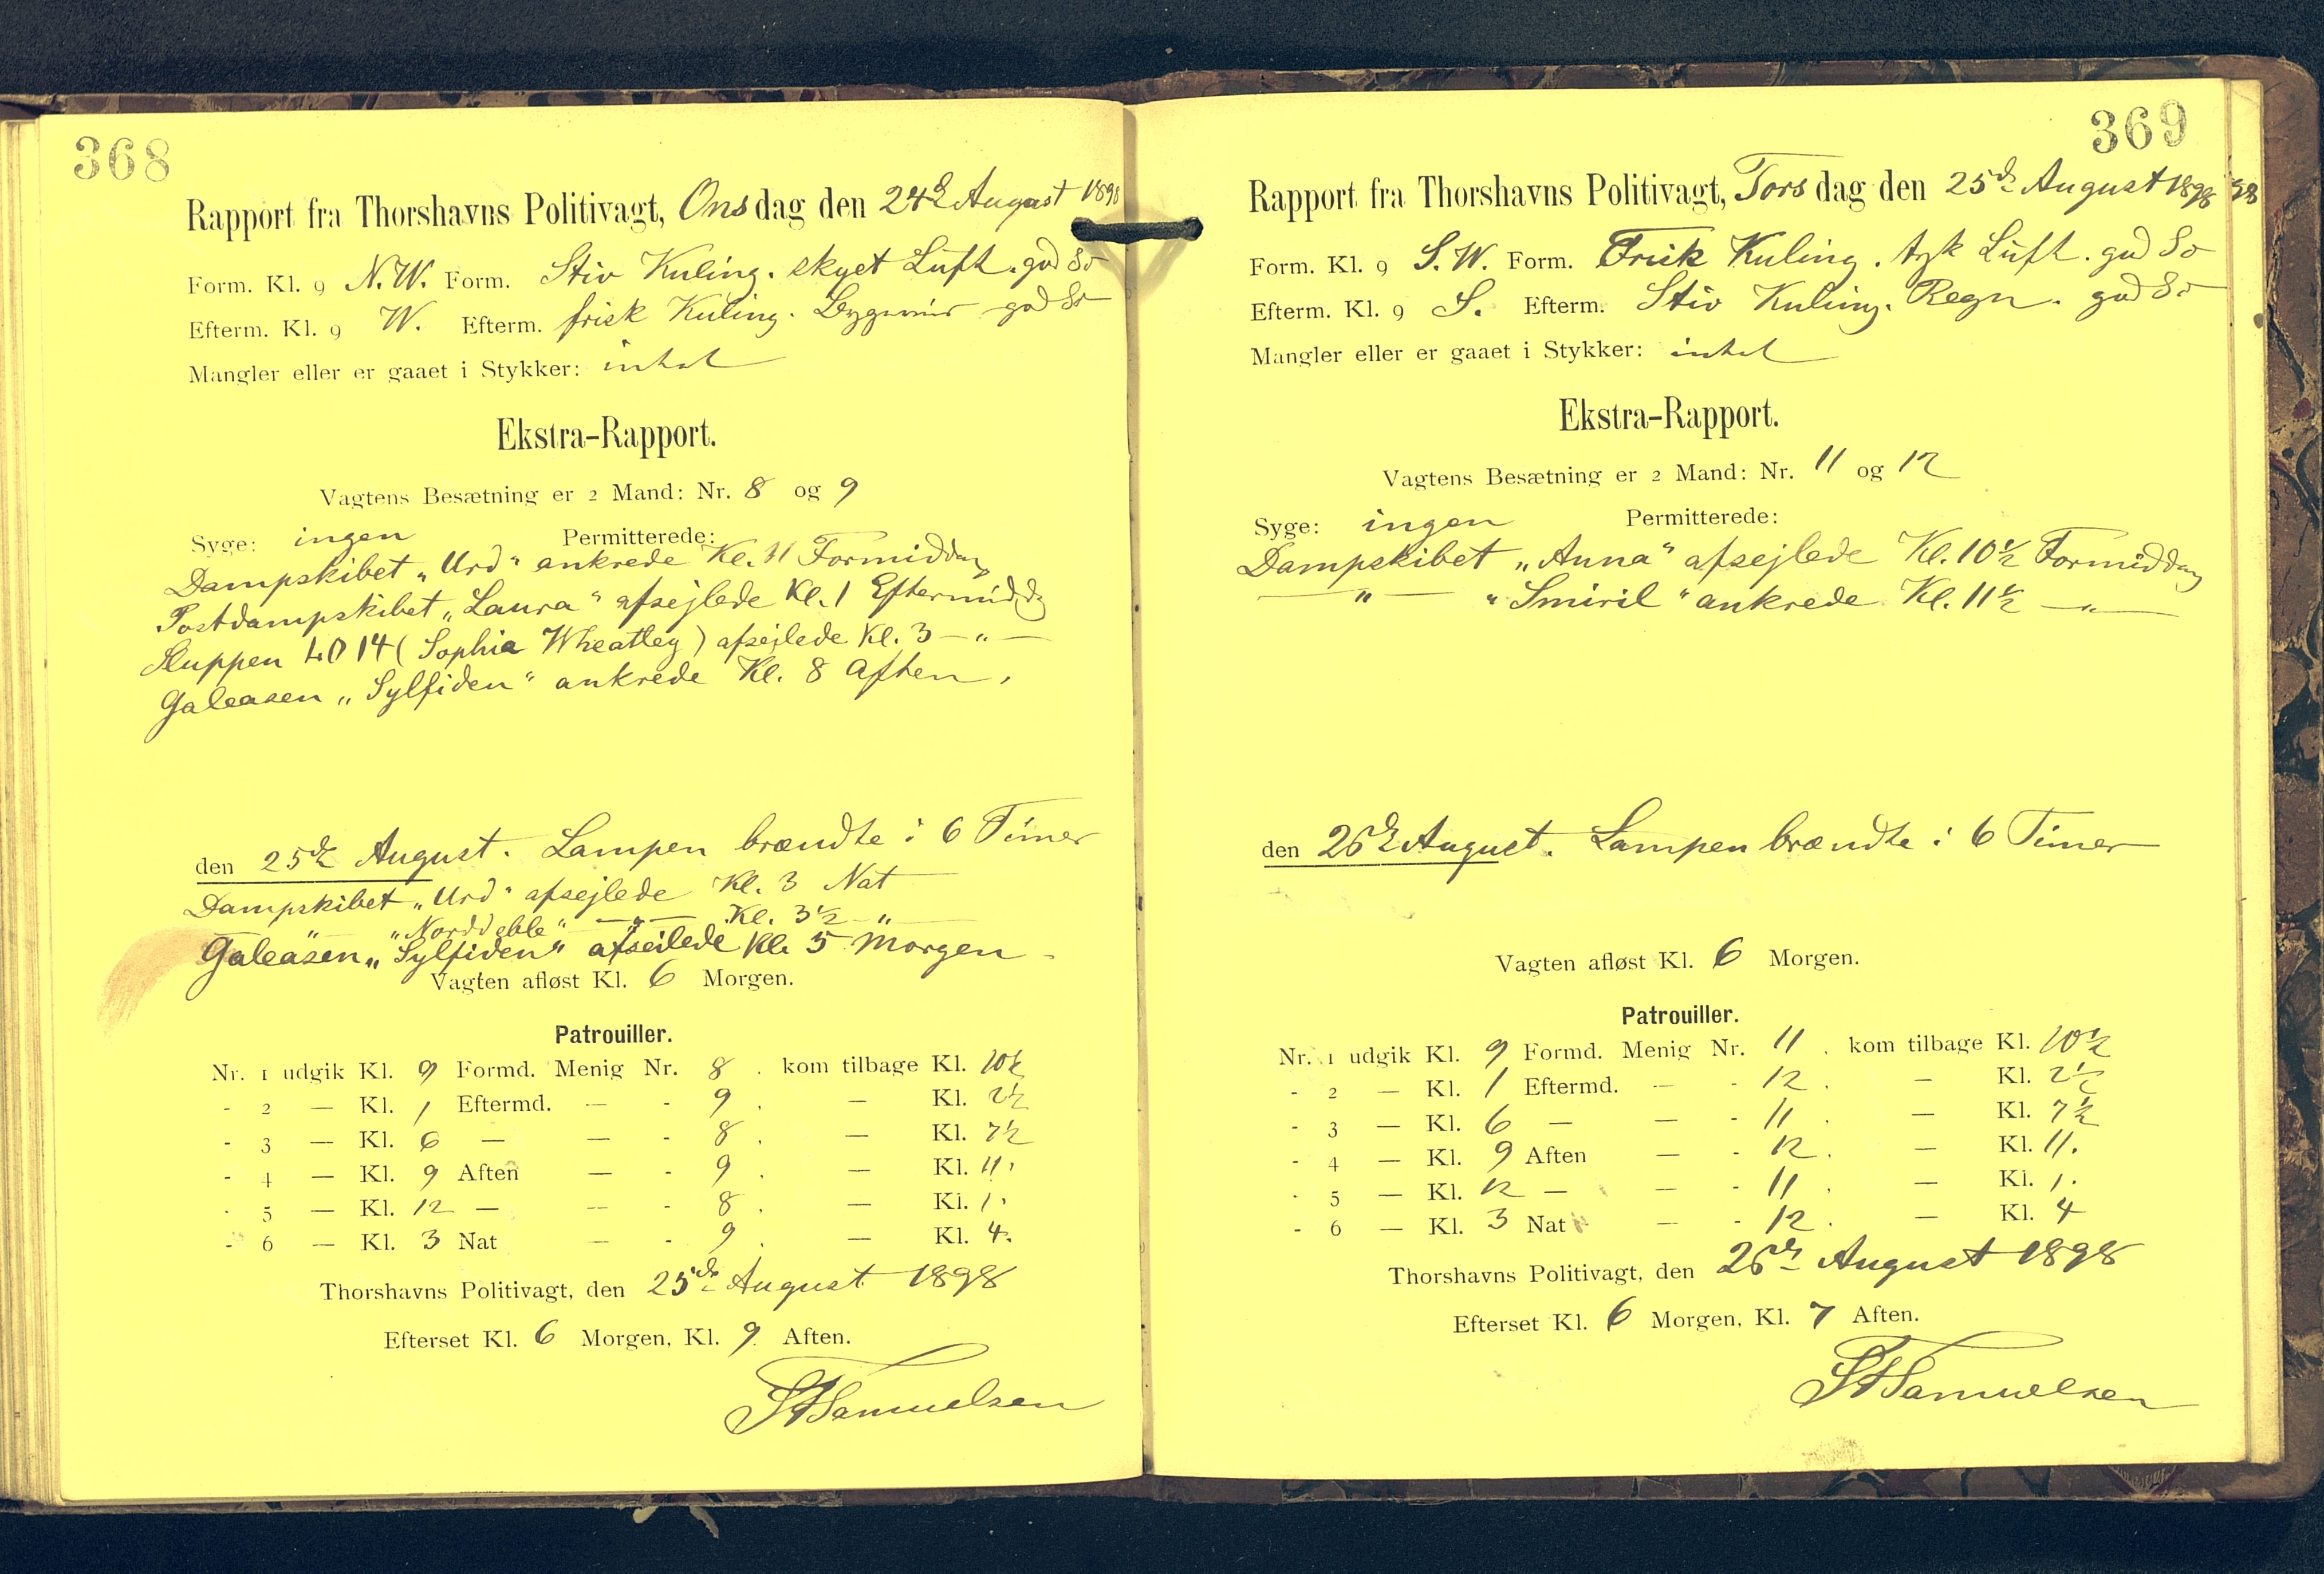 368
Rapport fra Thorshavns Politivagt, Onsdag den 24de August 1898
Form. Kl. 9 N.W. Form. Stiv Kuling. skyet Luft. god Sø
Efterm. Kl. 9 W. Efterm. frisk Kuling. god Sø
Mangler eller er gaaet i Stykker: intet
Ekstra-Rapport.
Vagtens Besætning er 2 Mand: Nr. 8 og 9
Syge: ingen Permitterede:
Dampskibet „Urd“ ankrede Kl. 11 Formiddag
Postdampskibet „Laura“ afsejlede Kl. 1 Eftermiddg
Sluppen LO 14 (Sophia Wheatley) afsejlede Kl. 3 — „ —
Galeasen „Sylfiden“ ankrede Kl. 8 Aften.
den 25de August. Lampen brændte i 6 Timer
Dampskibet „Urd“ afsejlede Kl. 3 Nat
— „ — „Norddeble“ — „ — Kl. 3½ — „ —
Galeasen „Sylfiden“ afseilede Kl. 5 Morgen
Vagten afløst Kl. 6 Morgen.
Patrouiller.
Nr. 1 udgik Kl. 9 Formd. Menig Nr. 8. kom tilbage Kl. 10½
- 2 — Kl. 1 Eftermd. — - 9. — Kl. 2½
- 3 — Kl. 6 — — - 8. — Kl. 7½
- 4 — Kl. 9 Aften — - 9. — Kl. 11.
- 5 — Kl. 12 — — - 8. — Kl. 1.
- 6 — Kl. 3 Nat — - 9. — Kl. 4.
Thorshavns Politivagt, den 25de August 1898
Efterset Kl. 6 Morgen, Kl. 9 Aften.
Samuelsen
369
Rapport fra Thorshavns Politivagt, Torsdag den 25de August 1898 98
Form. Kl. 9 S.W. Form. Frisk Kuling. tyk Luft. god Sø
Efterm. Kl. 9 S. Efterm. Stiv Kuling. Regn. god Sø
Mangler eller er gaaet i Stykker: intet
Ekstra-Rapport.
Vagtens Besætning er 2 Mand: Nr. 11 og 12
Syge: ingen Permitterede:
Dampskibet „Anna“ afsejlede Kl. 10½ Formiddag
— „ — „Smiril“ ankrede Kl. 11½ — „ —
den 26de August. Lampen brændte i 6 Timer
Vagten afløst Kl. 6 Morgen.
Patrouiller.
Nr. 1 udgik Kl. 9 Formd. Menig Nr. 11. kom tilbage Kl. 10½
- 2 — Kl. 1 Eftermd. — - 12. — Kl. 2½
- 3 — Kl. 6 — — - 11. — Kl. 7½
- 4 — Kl. 9 Aften — - 12. — Kl. 11.
- 5 — Kl. 12 — — - 11. — Kl. 1.
- 6 — Kl. 3 Nat — - 12. — Kl. 4
Thorshavns Politivagt, den 26de August 1898
Efterset Kl. 6 Morgen, Kl. 7 Aften.
Samuelsen